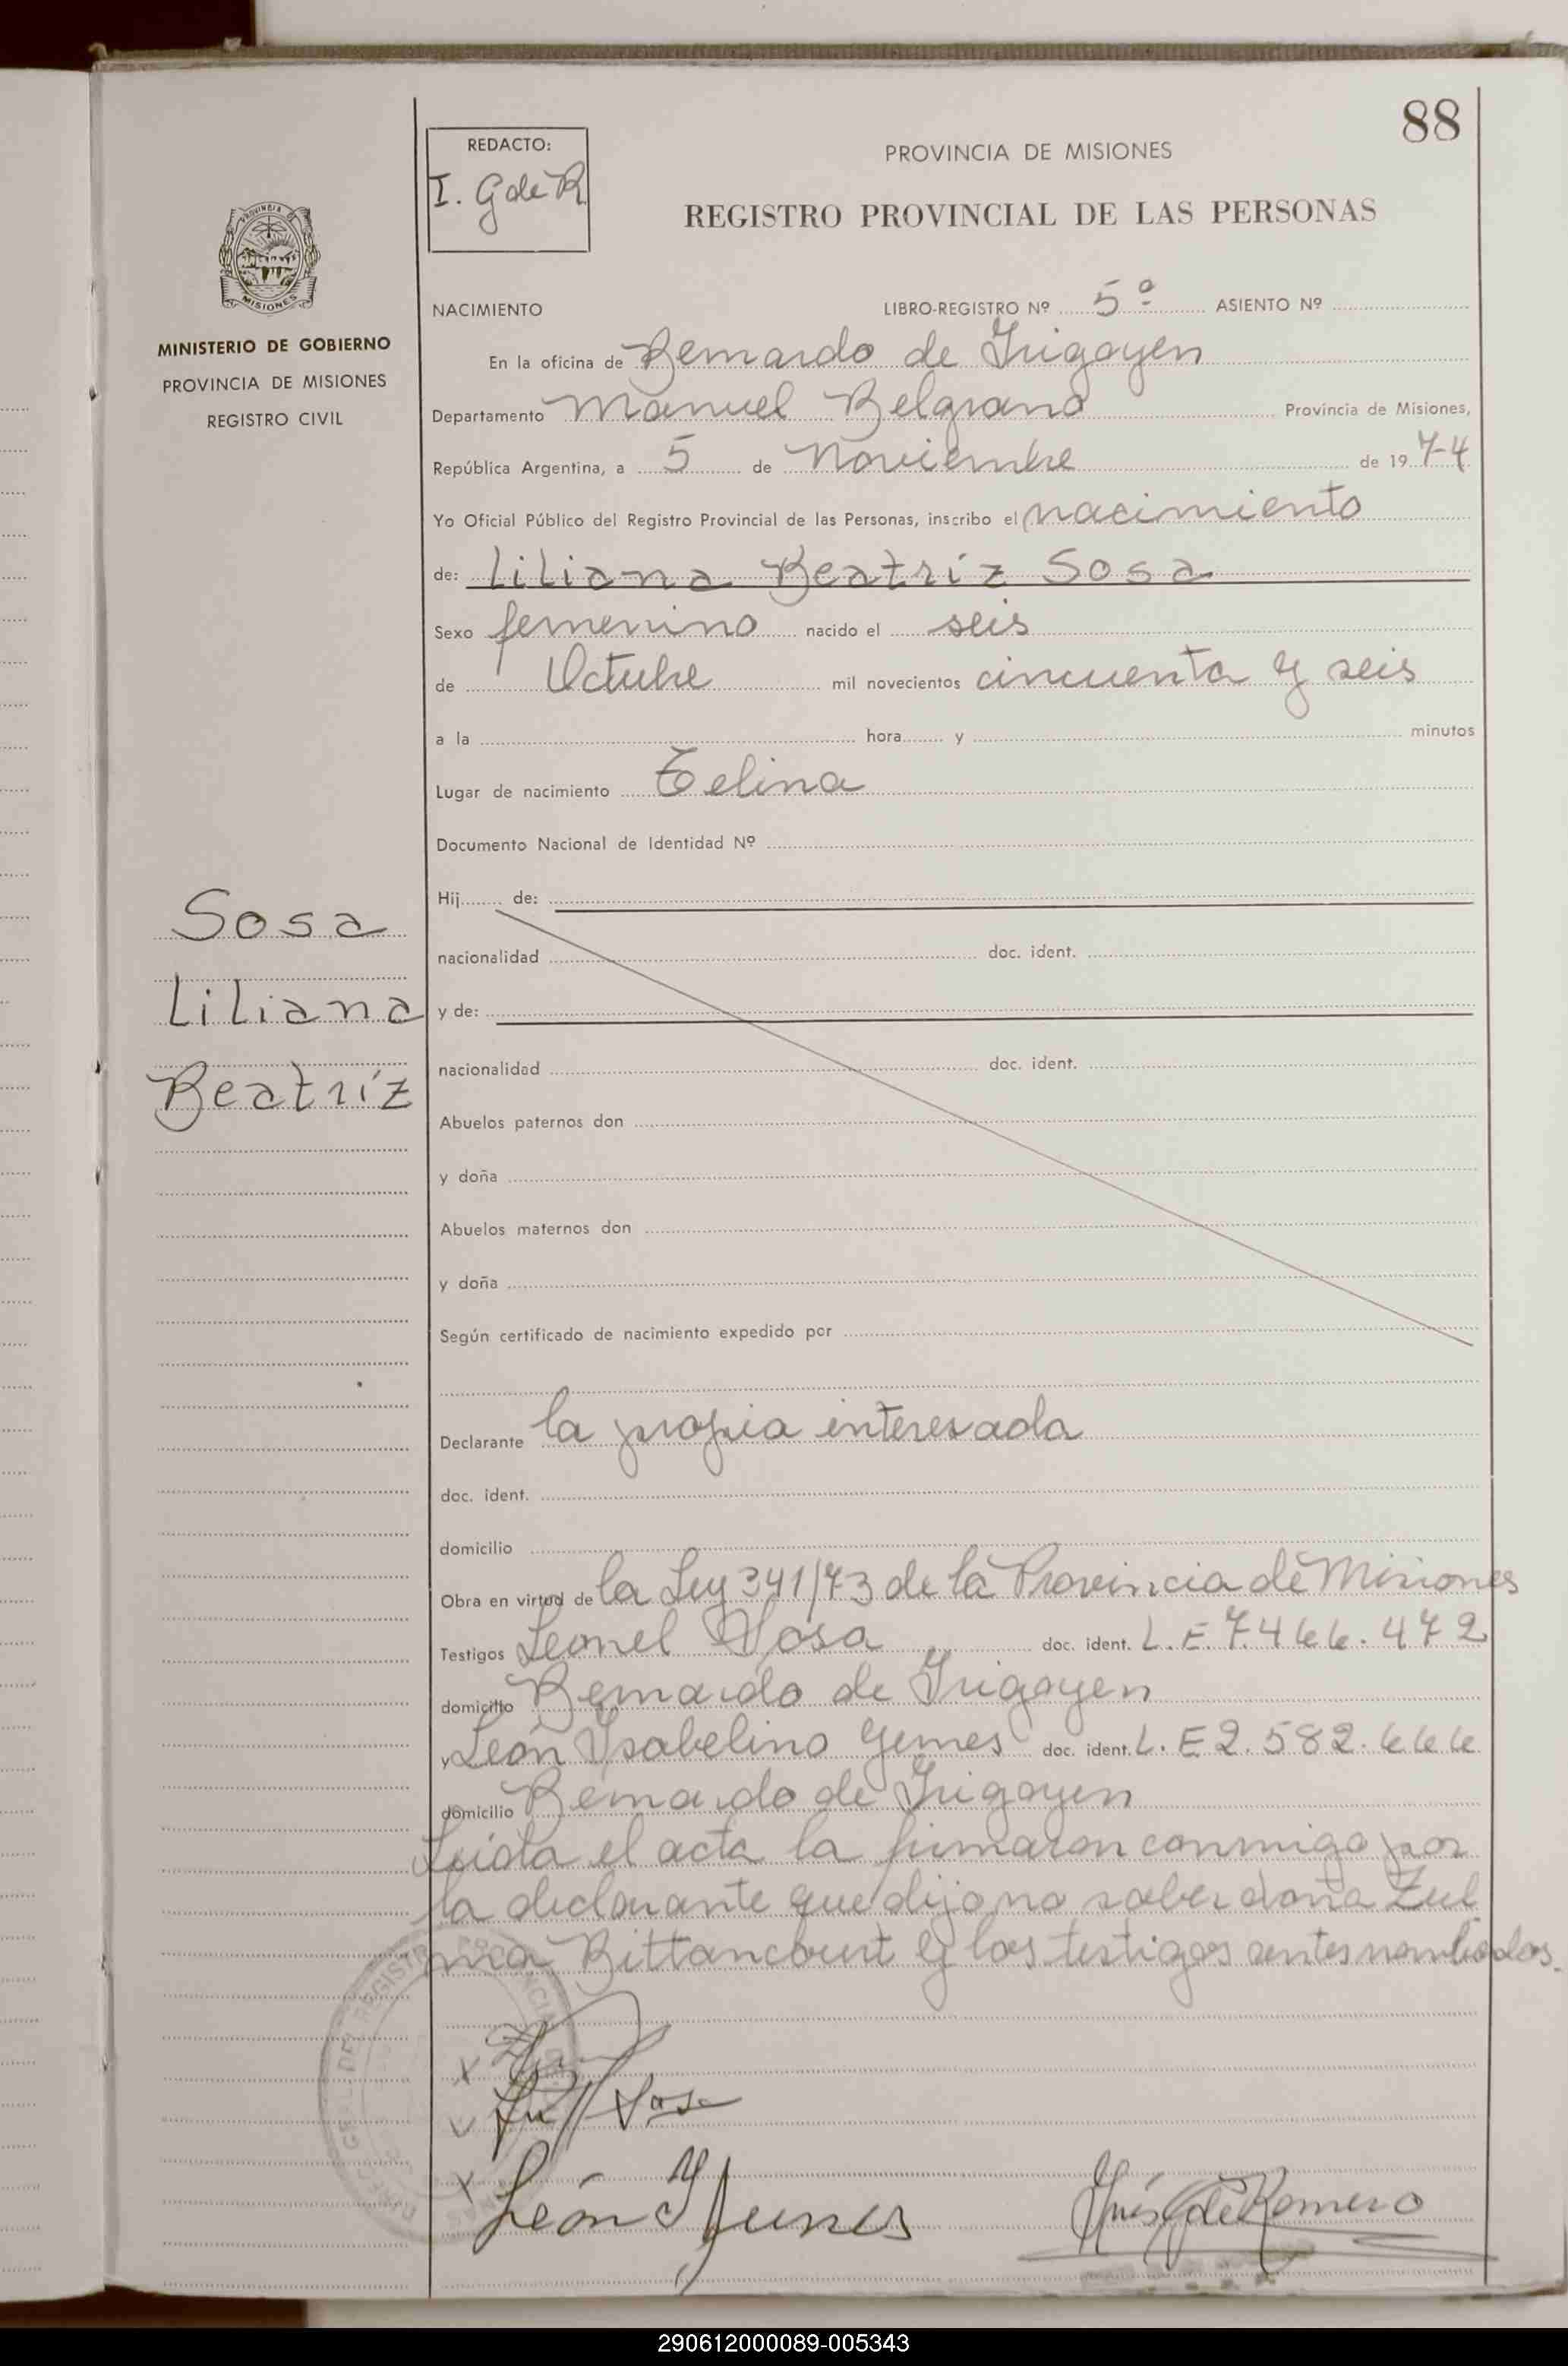 88
REDACTO:
I. G de R
PROVINCIA DE MISIONES
REGISTRO PROVINCIAL DE LAS PERSONAS
PROVINCIA DE
MISIONES
MINISTERIO DE GOBIERNO
PROVINCIA DE MISIONES
REGISTRO CIVIL
NACIMIENTO LIBRO-REGISTRO Nº 5º ASIENTO Nº
En la oficina de Bernardo de Irigoyen
Departamento Manuel Belgrano Provincia de Misiones,
República Argentina, a 5 de Noviembre de 1974
Yo Oficial Público del Registro Provincial de las Personas, inscribo el nacimiento
de: Liliana Beatríz Sosa
Sexo femenino nacido el seis
de Octubre mil novecientos cincuenta y seis
a la hora y minutos
Lugar de nacimiento
Documento Nacional de Identidad Nº
Hij de:
nacionalidad doc. ident.
y de:
nacionalidad doc. ident.
Abuelos paternos don
y doña
Abuelos maternos don
y doña
Según certificado de nacimiento expedido por
Sosa
Liliana
Beatríz
Declarante la propia interesada
doc. ident.
domicilio
Obra en virtud de la Ley 341/73 de la Provincia de Misiones
Testigos Leonel Sosa doc. ident. L.E.7.466.472
domicilio Bernardo de Irigoyen
y León Ysabelino Yunes doc. ident. L.E 2.582.666
domicilio Bernardo de Irigoyen
Leída el acta la firmaron conmigo por
la declarante que dijo no saber doña Zul
ma Bittancourt y los testigos antes nombrados.
Sosa
León Y Yunes
Inés G de Romero
290612000089-005343